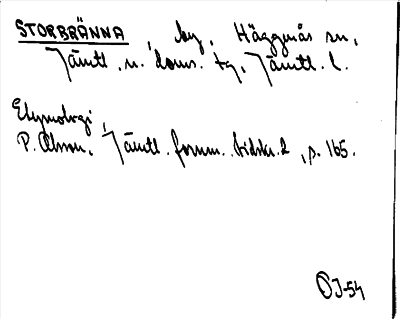 STORBRÄNNA, by, Häggenås sn,
Jämtl. n. doms. tg, Jämtl. l.
Etymologi,
P. Olsson, Jämtl. fornm. tidskr. 2, s. 165.
OJ-54